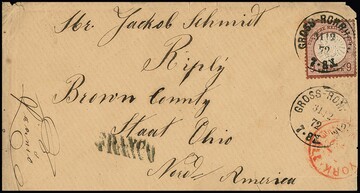 Mr. Jackob Schmidt
Riply
Brown County
Staat Ohio
Nord America
FRANCO
GROSS-ROHRH
31 12
72
7-8
GROSS-ROHR
31 12
72
7-8
YORK